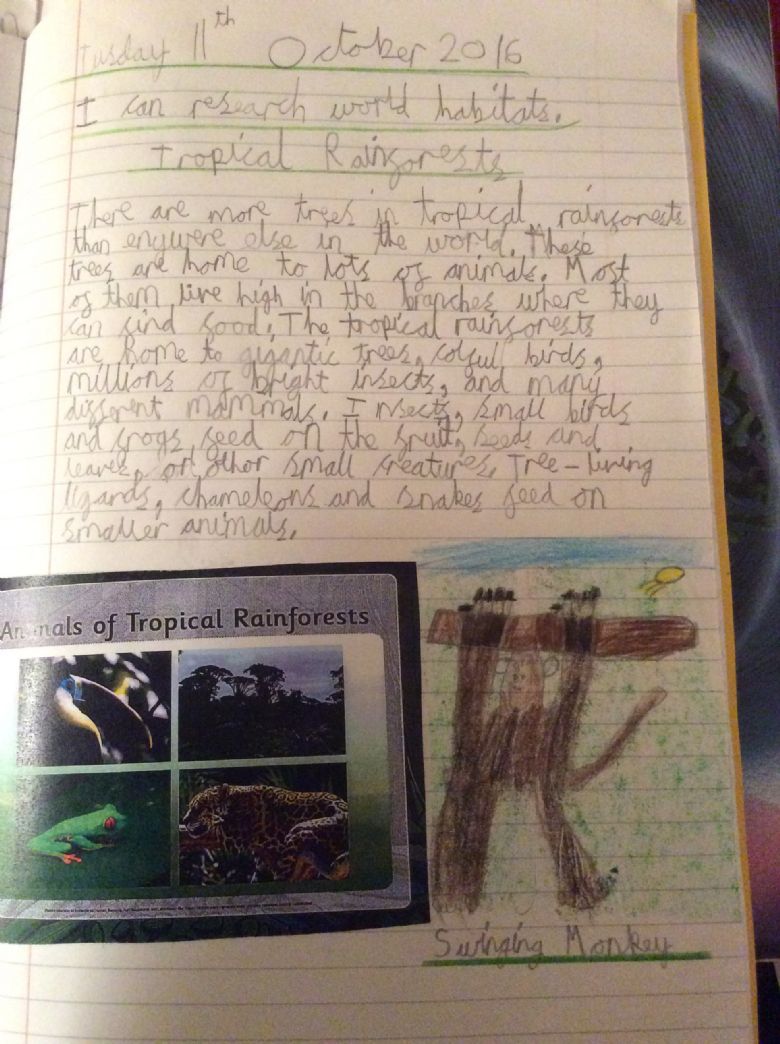 Tusday 11th October 2016
I can research world habitats.
Tropical Rainforests
There are more trees in tropical rainforests
than enywere else in the world. These
trees are home to lots of animals. Most
of them live high in the branches where they
can find food. The tropical rainforests
are home to gigantic trees, colful birds,
millions of bright insects, and many
different mammals. Insects, small birds
and frogs feed on the fruit, seeds and
leaves, or other small creatures. Tree-living
lizards, chameleons and snakes feed on
smaller animals.
Animals of Tropical Rainforests
Swinging Monkey